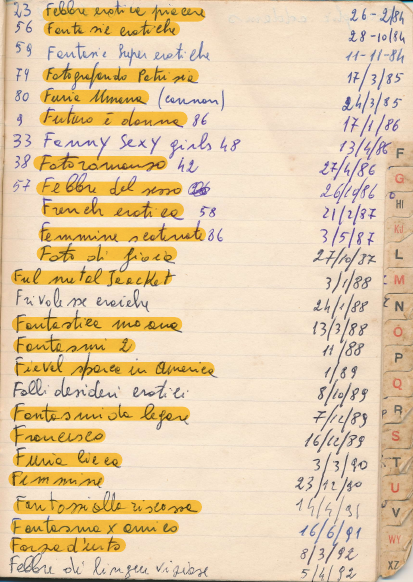 23 Febbre erotica piacere 26-2/84
56 Fantasie erotiche 28-10/84
59 Fantasie super erotiche 11-11-84
79 Fotografando Patrisia 17/3/85
80 Furia Umana (cannon) 24/3/85
9 Futuro è donna 86 17/1/86
33 Fanny Sexy girls 48 13/4/86
38 Fotoromanso 42 27/4/86
57 Febbre del sesso 26/10/86
French erotica 58 21/2/87
Femmine scatenate 86 3/5/87
Foto di gioia 27/10/87
Ful metal Jacket 3/1/88
Frivolesse eroiche 24/1/88
Fantastica moana 13/3/88
Fantasmi 2 11/88
Fievel sparca in America 1/89
Folli desideri erotici 8/10/89
Fantasmi da legare 7/12/89
Francesco 16/12/89
Furia cieca 3/3/90
Femmine 23/12/90
Fantossi alla riscossa 14/4/91
Fantasma x amico 16/6/91
Forsa d'urto 8/3/92
Febbre di lingue visiose 5/4/92
F
G
HI
KJ
L
M
N
O
P
Q
R
S
T
U
V
WY
XZ